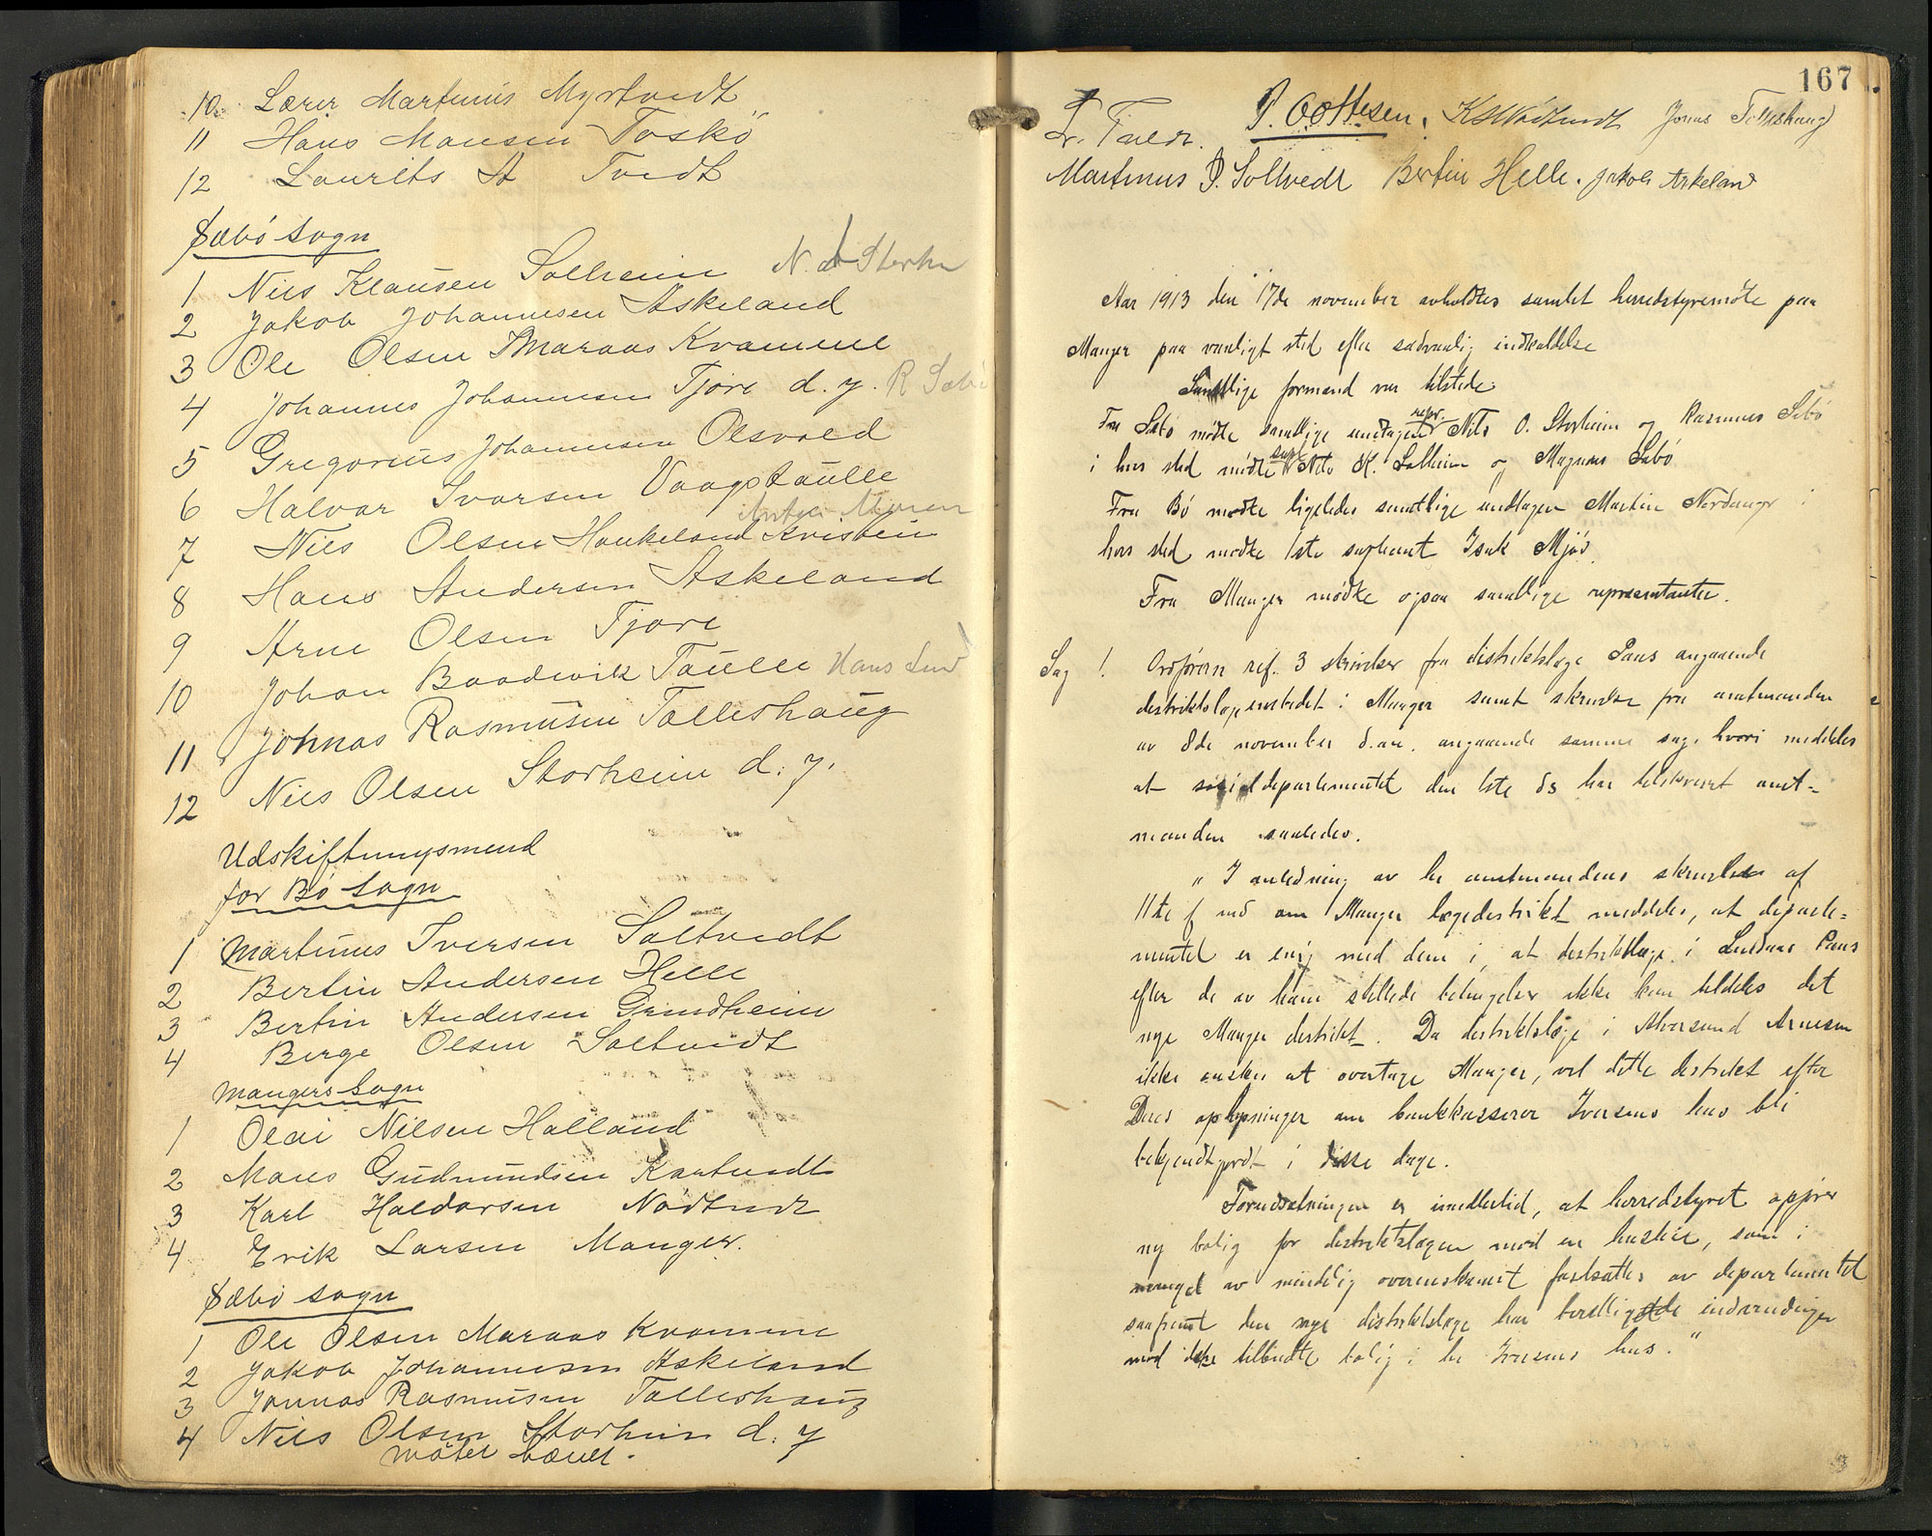 10. Lærer Martinus Myrtvedt
11 Hans Monsen Toskö
12 Laurits A Tvedt
Sæbö sogn
1 Nils Klausen Solheim N. Storh
2 Jakob Johannesen Askeland
3 Ole Olsen Maraas Kvamme
4 Johannes Johannesen Tjore d. y. R Sæbö
5 Gregorius Johannesen Olsvold
6 Halvar Ivarsen Vaagstaulle
7 Nils Olsen Haukeland Kristein
8 Hans Andersen Askeland
9 Arne Olsen Tjore
10 Johan Baadsvik Taule Hans
11 Johnas Rasmusen Talleshaug
12 Nils Olsen Storheim d. y.
Udskiftningsmend
for Bö sogn
1 Martinus Iversen Soltvedt
2 Bertin Andersen Helle
3 Bertin Andersen Grindheim
4 Berge Olsen Soltvedt
Mangers sogn
1 Olai Nilsen Halland
2 Mons Gudmundsen Kartvedt
3 Karl Haldorsen Nödtvedt
4 Erik Larsen Manger.
Sæbö sogn
1 Ole Olsen Maraas Kvamme
2 Jakob Johannesen Askeland
3 Jonnas Rasmusen Talleshaug
4 Nils Olsen Storheim d. y
Mötet hævet.
167
P. Oottesen. K H Nödtvedt Jonas Talleshaug
Martinus P. Soltvedt Bertin Helle. Jakob Askeland
Aar 1913 den 17de november avholdtes samlet herredstyremöte paa
Manger paa vanligt sted efter sedvanlig indkaldelse
Samtlige formænd var tilstede.
Fra Sæbö mödte samtlige undtagen repr. Nils O. Storheim og Rasmus Sæbö
i hvis sted mödte supl. Nils K. Solheim og Magnus Sæbö
Fra Bö mödte ligeledes samtlige undtagen Martin Nordanger i
hvis sted mödte 1ste supleant Isak Mjös.
Fra Manger mödte ogsaa samtlige repræsentanter.
Sag 1. Ordföreren ref. 3 skrivelser fra distriktslæge Paus angaaende
distriktslægeembedet i Manger samt skrivelse fra amtmanden
av 8de november d.aa. angaaende samme sag, hvori meddeles
at socialdepartementet den 1ste ds har tilskrevet amt-
manden saaledes.
"I anledning av hr amtmandens skrivelse af
11te f md om Manger lægedistrikt meddeles, at departe-
mentet er enig med dem i, at distriktslæge i Lindaas Paus
efter de av ham stillede betingelser ikke kan tildeles det
nye Manger distrikt. Da distriktslæge i Alversund Arnesen
ikke önsker at overtage Manger, vil dette distrikt efter
Deres oplysninger om bankkasserer Iversens hus bli
bekjendtgjort i disse dage.
Forudsætningen er imidlertid, at herredstyret opförer
ny bolig for distriktslægen mod en husleie, som i
mangel av mindelig overenskomst fastsættes av departementet
saafremt den nye distriktslæge har berettigede indvendinger
mod den tilbudte bolig i hr Iversens hus."